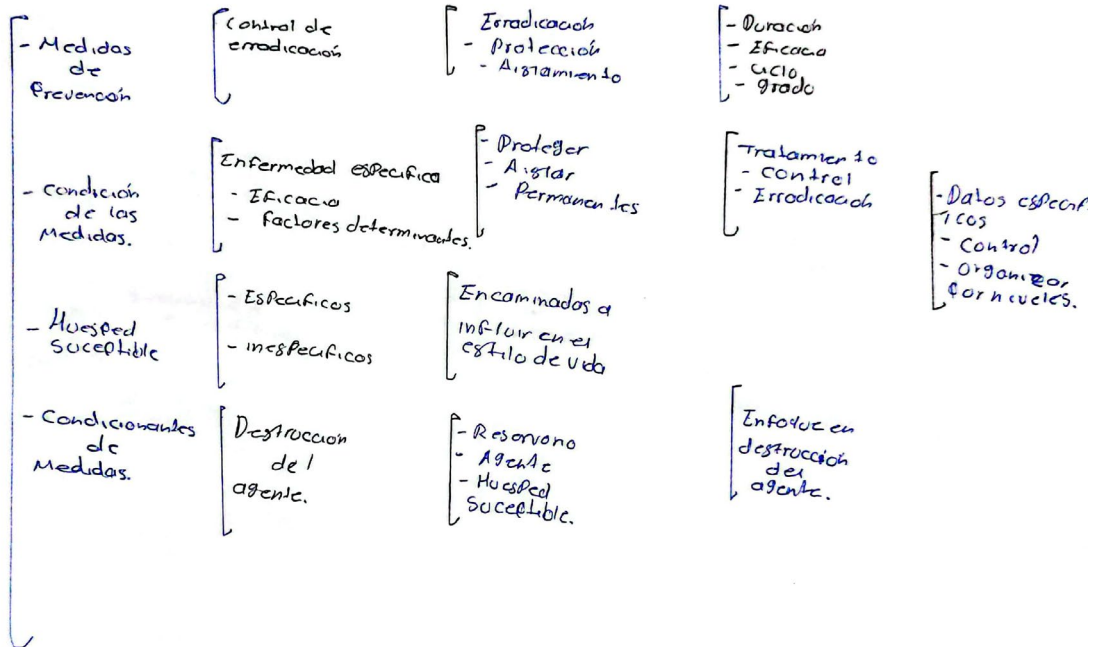 - Medidas
de
Prevención
Control de
erradicación
Erradicación
- Protección
- Aislamiento
- Duración
- Eficacia
- ciclo
- grado
- condición
de las
Medidas.
Enfermedad especifica
- Eficacia
- factores determinantes.
- Proteger
- Aislar
- Permanentes
Tratamiento
- control
- Errodicación
- Datos especif
icos
- Control
- organizar
por niveles.
- Huesped
suceptible
- Especificos
- inespecificos
Encaminados a
influir en el
estilo de vida
- Condicionantes
de
Medidas.
Destrucción
del
agente.
- Reservorio
- Agente
- Huesped
Suceptible.
Enfoque en
destrucción
del
agente.